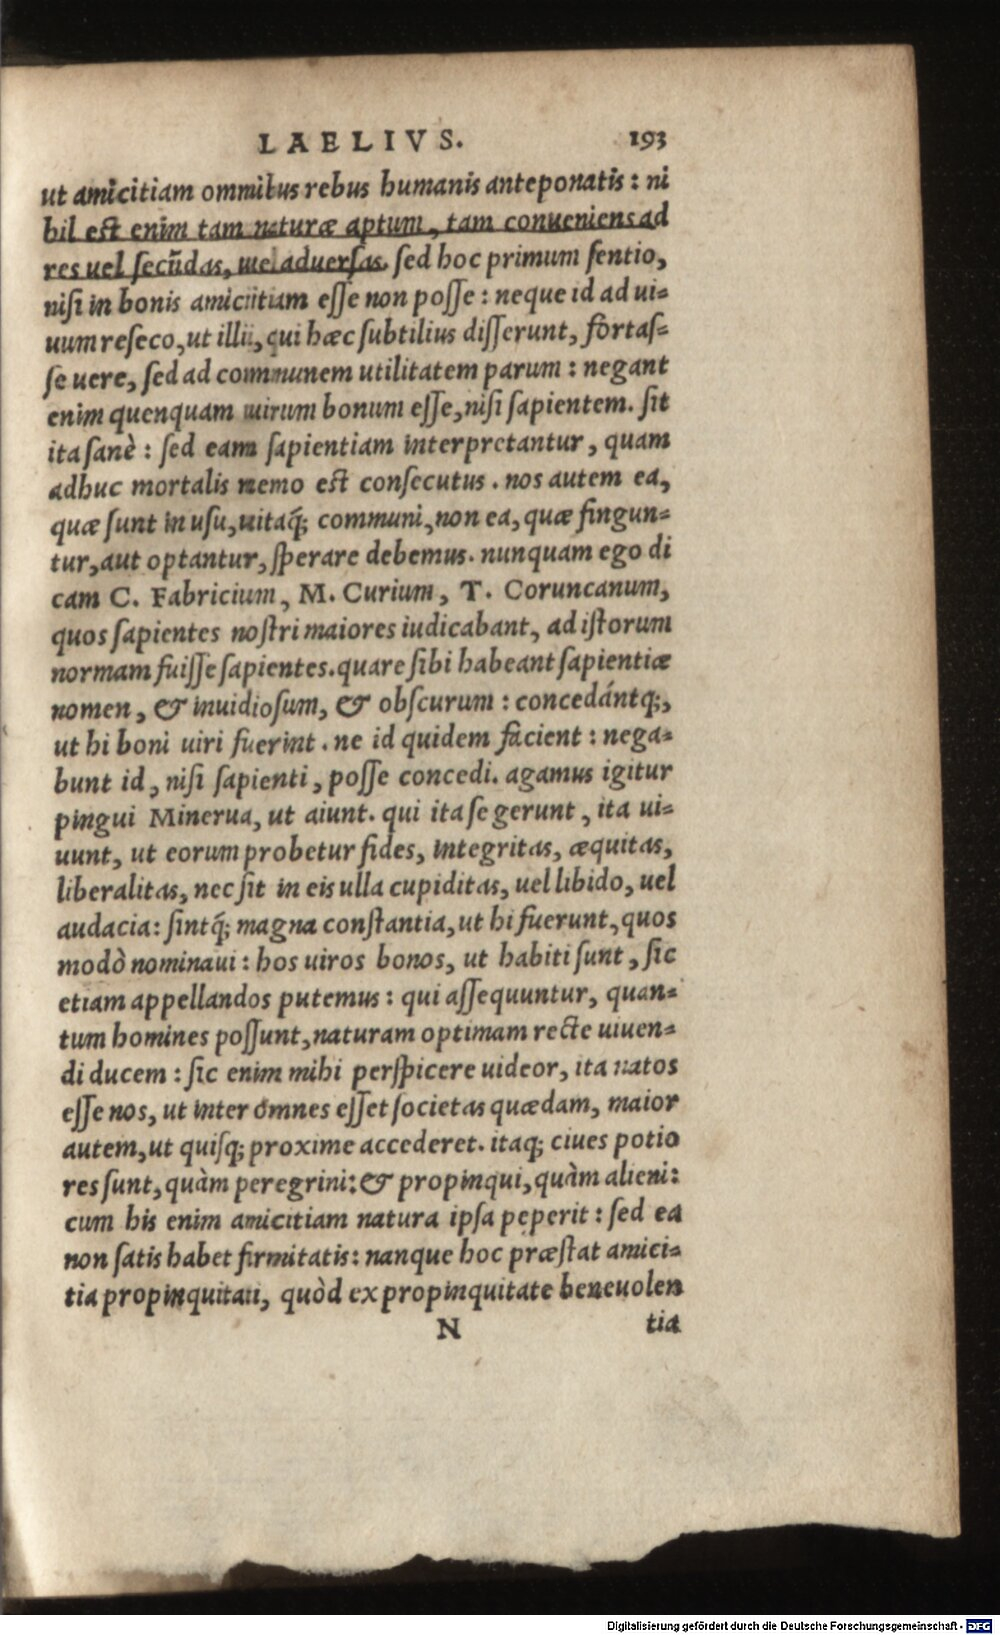 LAELIVS. 193
ut amicitiam omnibus rebus humanis anteponatis: ni
hil est enim tam naturæ aptum, tam conueniens ad
res uel secũdas, uel aduersas. sed hoc primum sentio,
nisi in bonis amicitiam esse non posse: neque id ad ui=
uum reseco, ut illi, qui hæc subtilius disserunt, fortas=
se uere, sed ad communem utilitatem parum: negant
enim quenquam uirum bonum esse, nisi sapientem. sit
ita sanè: sed eam sapientiam interpretantur, quam
adhuc mortalis nemo est consecutus. nos autem ea,
quæ sunt in usu, uitaq́; communi, non ea, quæ fingun=
tur, aut optantur, sperare debemus. nunquam ego di
cam C. Fabricium, M. Curium, T. Coruncanum,
quos sapientes nostri maiores iudicabant, ad istorum
normam fuisse sapientes. quare sibi habeant sapientiæ
nomen, & inuidiosum, & obscurum: concedántq;,
ut hi boni uiri fuerint. ne id quidem facient: nega=
bunt id, nisi sapienti, posse concedi. agamus igitur
pingui Minerua, ut aiunt. qui ita se gerunt, ita ui=
uunt, ut eorum probetur fides, integritas, æquitas,
liberalitas, nec sit in eis ulla cupiditas, uel libido, uel
audacia: sintq́; magna constantia, ut hi fuerunt, quos
modò nominaui: hos uiros bonos, ut habiti sunt, sic
etiam appellandos putemus: qui assequuntur, quan=
tum homines possunt, naturam optimam recte uiuen=
di ducem: sic enim mihi perspicere uideor, ita natos
esse nos, ut inter omnes esset societas quædam, maior
autem, ut quisq; proxime accederet. itaq; ciues potio
res sunt, quàm peregrini: & propinqui, quàm alieni:
cum his enim amicitiam natura ipsa peperit: sed ea
non satis habet firmitatis: nanque hoc præstat amici=
tia propinquitati, quòd ex propinquitate beneuolen
N tia
Digitalisierung gefördert durch die Deutsche Forschungsgemeinschaft - DFG